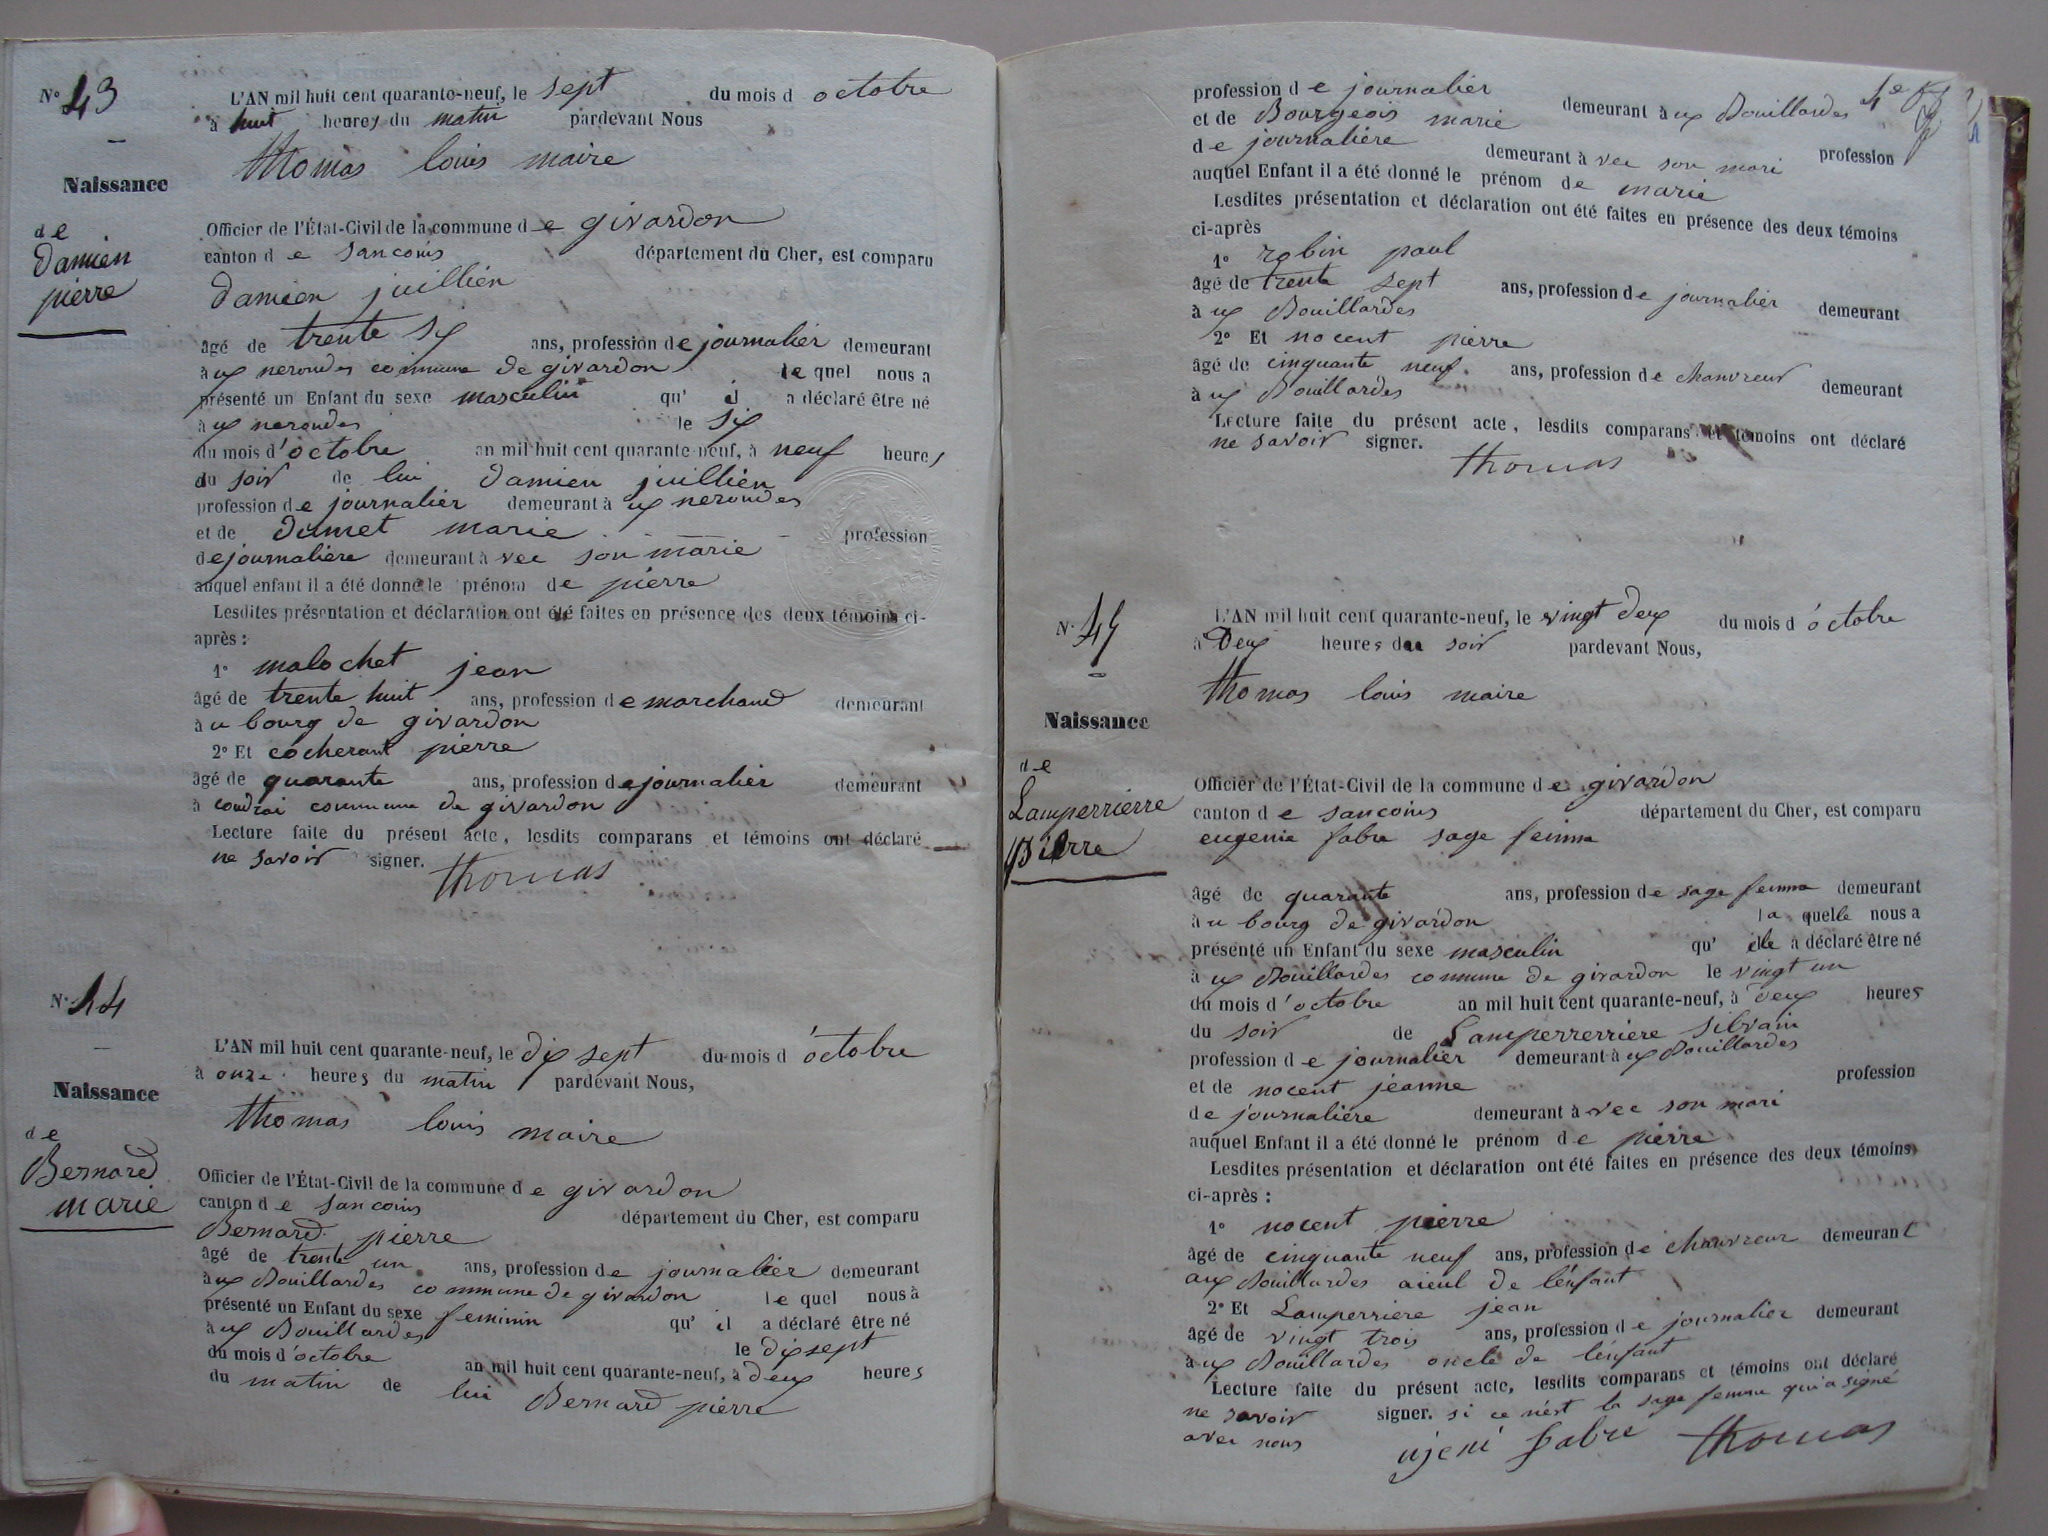 N° 43
Naissance
de
Damien
pierre
L'AN mil huit cent quarante-neuf, le sept du mois d octobre
à huit heures du matin pardevant Nous
thomas louis maire
Officier de l'État-Civil de la commune de givardon
canton de sancoins département du Cher, est comparu
Damien juillien
âgé de trente six ans, profession de journalier demeurant
à ux nerondes commune de givardon le quel nous a
présenté un Enfant du sexe masculin qu' il a déclaré être né
à ux nerondes le six
du mois d'octobre an mil huit cent quarante-neuf, à neuf heures
du soir de lui Damien juillien
profession de journalier demeurant à ux nerondes
et de dumet marie profession
de journalière demeurant à vec son marie
auquel enfant il a été donné le prénom de pierre
Lesdites présentation et déclaration ont été faites en présence des deux témoins ci-
après :
1° malochet jean
âgé de trente huit ans, profession de marchand demeurant
à u bourg de givardon
2° Et cocherant pierre
âgé de quarante ans, profession de journalier demeurant
à coudrai commune de givardon
Lecture faite du présent acte, lesdits comparans et témoins ont déclaré
ne savoir signer.
thomas
N° 44
Naissance
de
Bernard
marie
L'AN mil huit cent quarante-neuf, le dix sept du mois d'octobre
à onze heures du matin pardevant Nous,
thomas louis maire
Officier de l'État-Civil de la commune de givardon
canton de sancoins département du Cher, est comparu
Bernard pierre
âgé de trente un ans, profession de journalier demeurant
à ux Douillardes commune de givardon le quel nous à
présenté un Enfant du sexe feminin qu' il a déclaré être né
à ux Douillardes le dix sept
du mois d'octobre an mil huit cent quarante-neuf, à deux heures
du matin de lui Bernard pierre
profession de journalier demeurant à ux Douillardes
et de Bourgeois marie profession
de journalière demeurant à vec son mari
auquel Enfant il a été donné le prénom de marie
Lesdites présentation et déclaration ont été faites en présence des deux témoins
ci-après
1° robin paul
âgé de trente sept ans, profession de journalier demeurant
à ux Douillardes
2° Et nocent pierre
âgé de cinquante neuf ans, profession de chanvreur demeurant
à ux Douillardes
Lecture faite du présent acte, lesdits comparans et témoins ont déclaré
ne savoir signer.
thomas
N° 45
Naissance
de
Lamperrierre
pierre
L'AN mil huit cent quarante-neuf, le vingt deux du mois d'octobre
à Deux heures du soir pardevant Nous,
thomas louis maire
Officier de l'État-Civil de la commune de givardon
canton de sancoins département du Cher, est comparu
eugenie fabre sage femme
âgé de quarante ans, profession de sage femme demeurant
à u bourg de givardon la quelle nous a
présenté un Enfant du sexe masculin qu' elle a déclaré être né
à ux Douillardes commune de givardon le vingt un
du mois d'octobre an mil huit cent quarante-neuf, à deux heures
du soir de Lamperrerriere silvain
profession de journalier demeurant à ux Douillardes
et de nocent jeanne profession
de journalière demeurant à vec son mari
auquel Enfant il a été donné le prénom de pierre
Lesdites présentation et déclaration ont été faites en présence des deux témoins
ci-après :
1° nocent pierre
âgé de cinquante neuf ans, profession de chanvreur demeurant
aux Douillardes aieul de l'enfant
2° Et Lamperriere jean
âgé de vingt trois ans, profession de journalier demeurant
à ux Douillardes oncle de l'enfant
Lecture faite du présent acte, lesdits comparans et témoins ont déclaré
ne savoir signer. si ce n'est la sage femme qui a signé
avec nous
ujeni fabre thomas